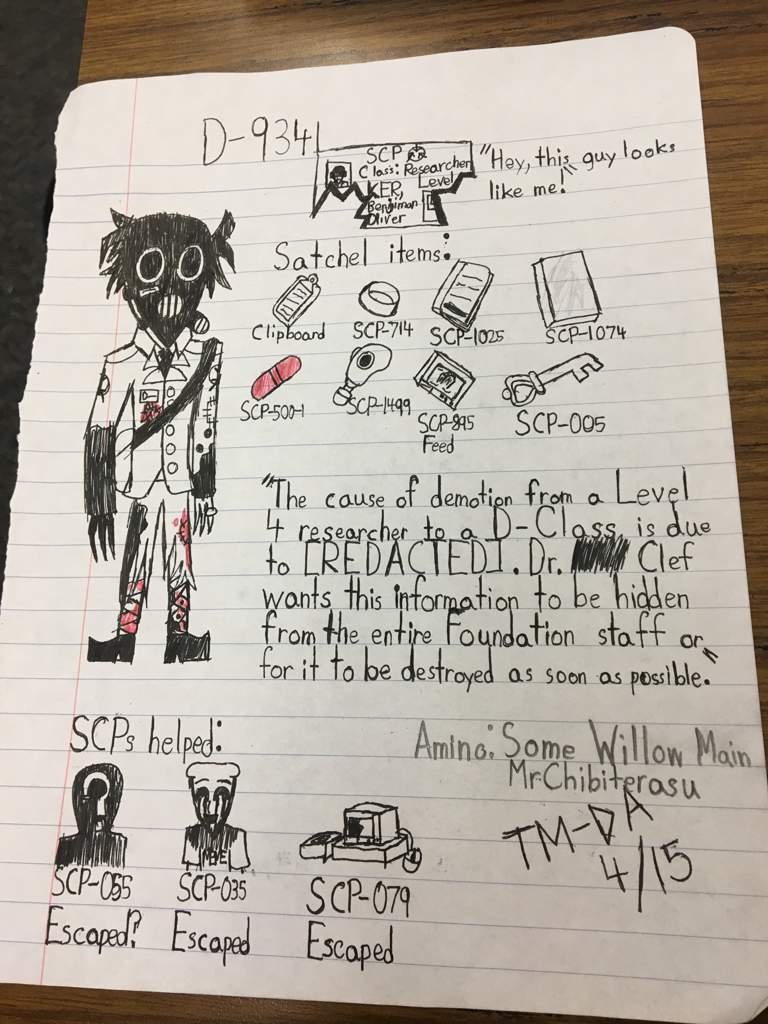 D-9341
SCP
Class: Researcher
KER, Level
Benjiman
Oliver
"Hey, this guy looks
like me!"
Satchel items:
Clipboard
SCP-714
SCP-1025
SCP-1074
SCP-500-1
SCP-1499
SCP-895
Feed
SCP-005
"The cause of demotion from a Level
4 researcher to a D-Class is due
to [REDACTED]. Dr. Clef
wants this information to be hidden
from the entire Foundation staff or
for it to be destroyed as soon as possible."
SCPs helped:
SCP-055
Escaped?
SCP-035
Escaped
SCP-079
Escaped
Amino: Some Willow Main
MrChibiterasu
TM-DA
4/15